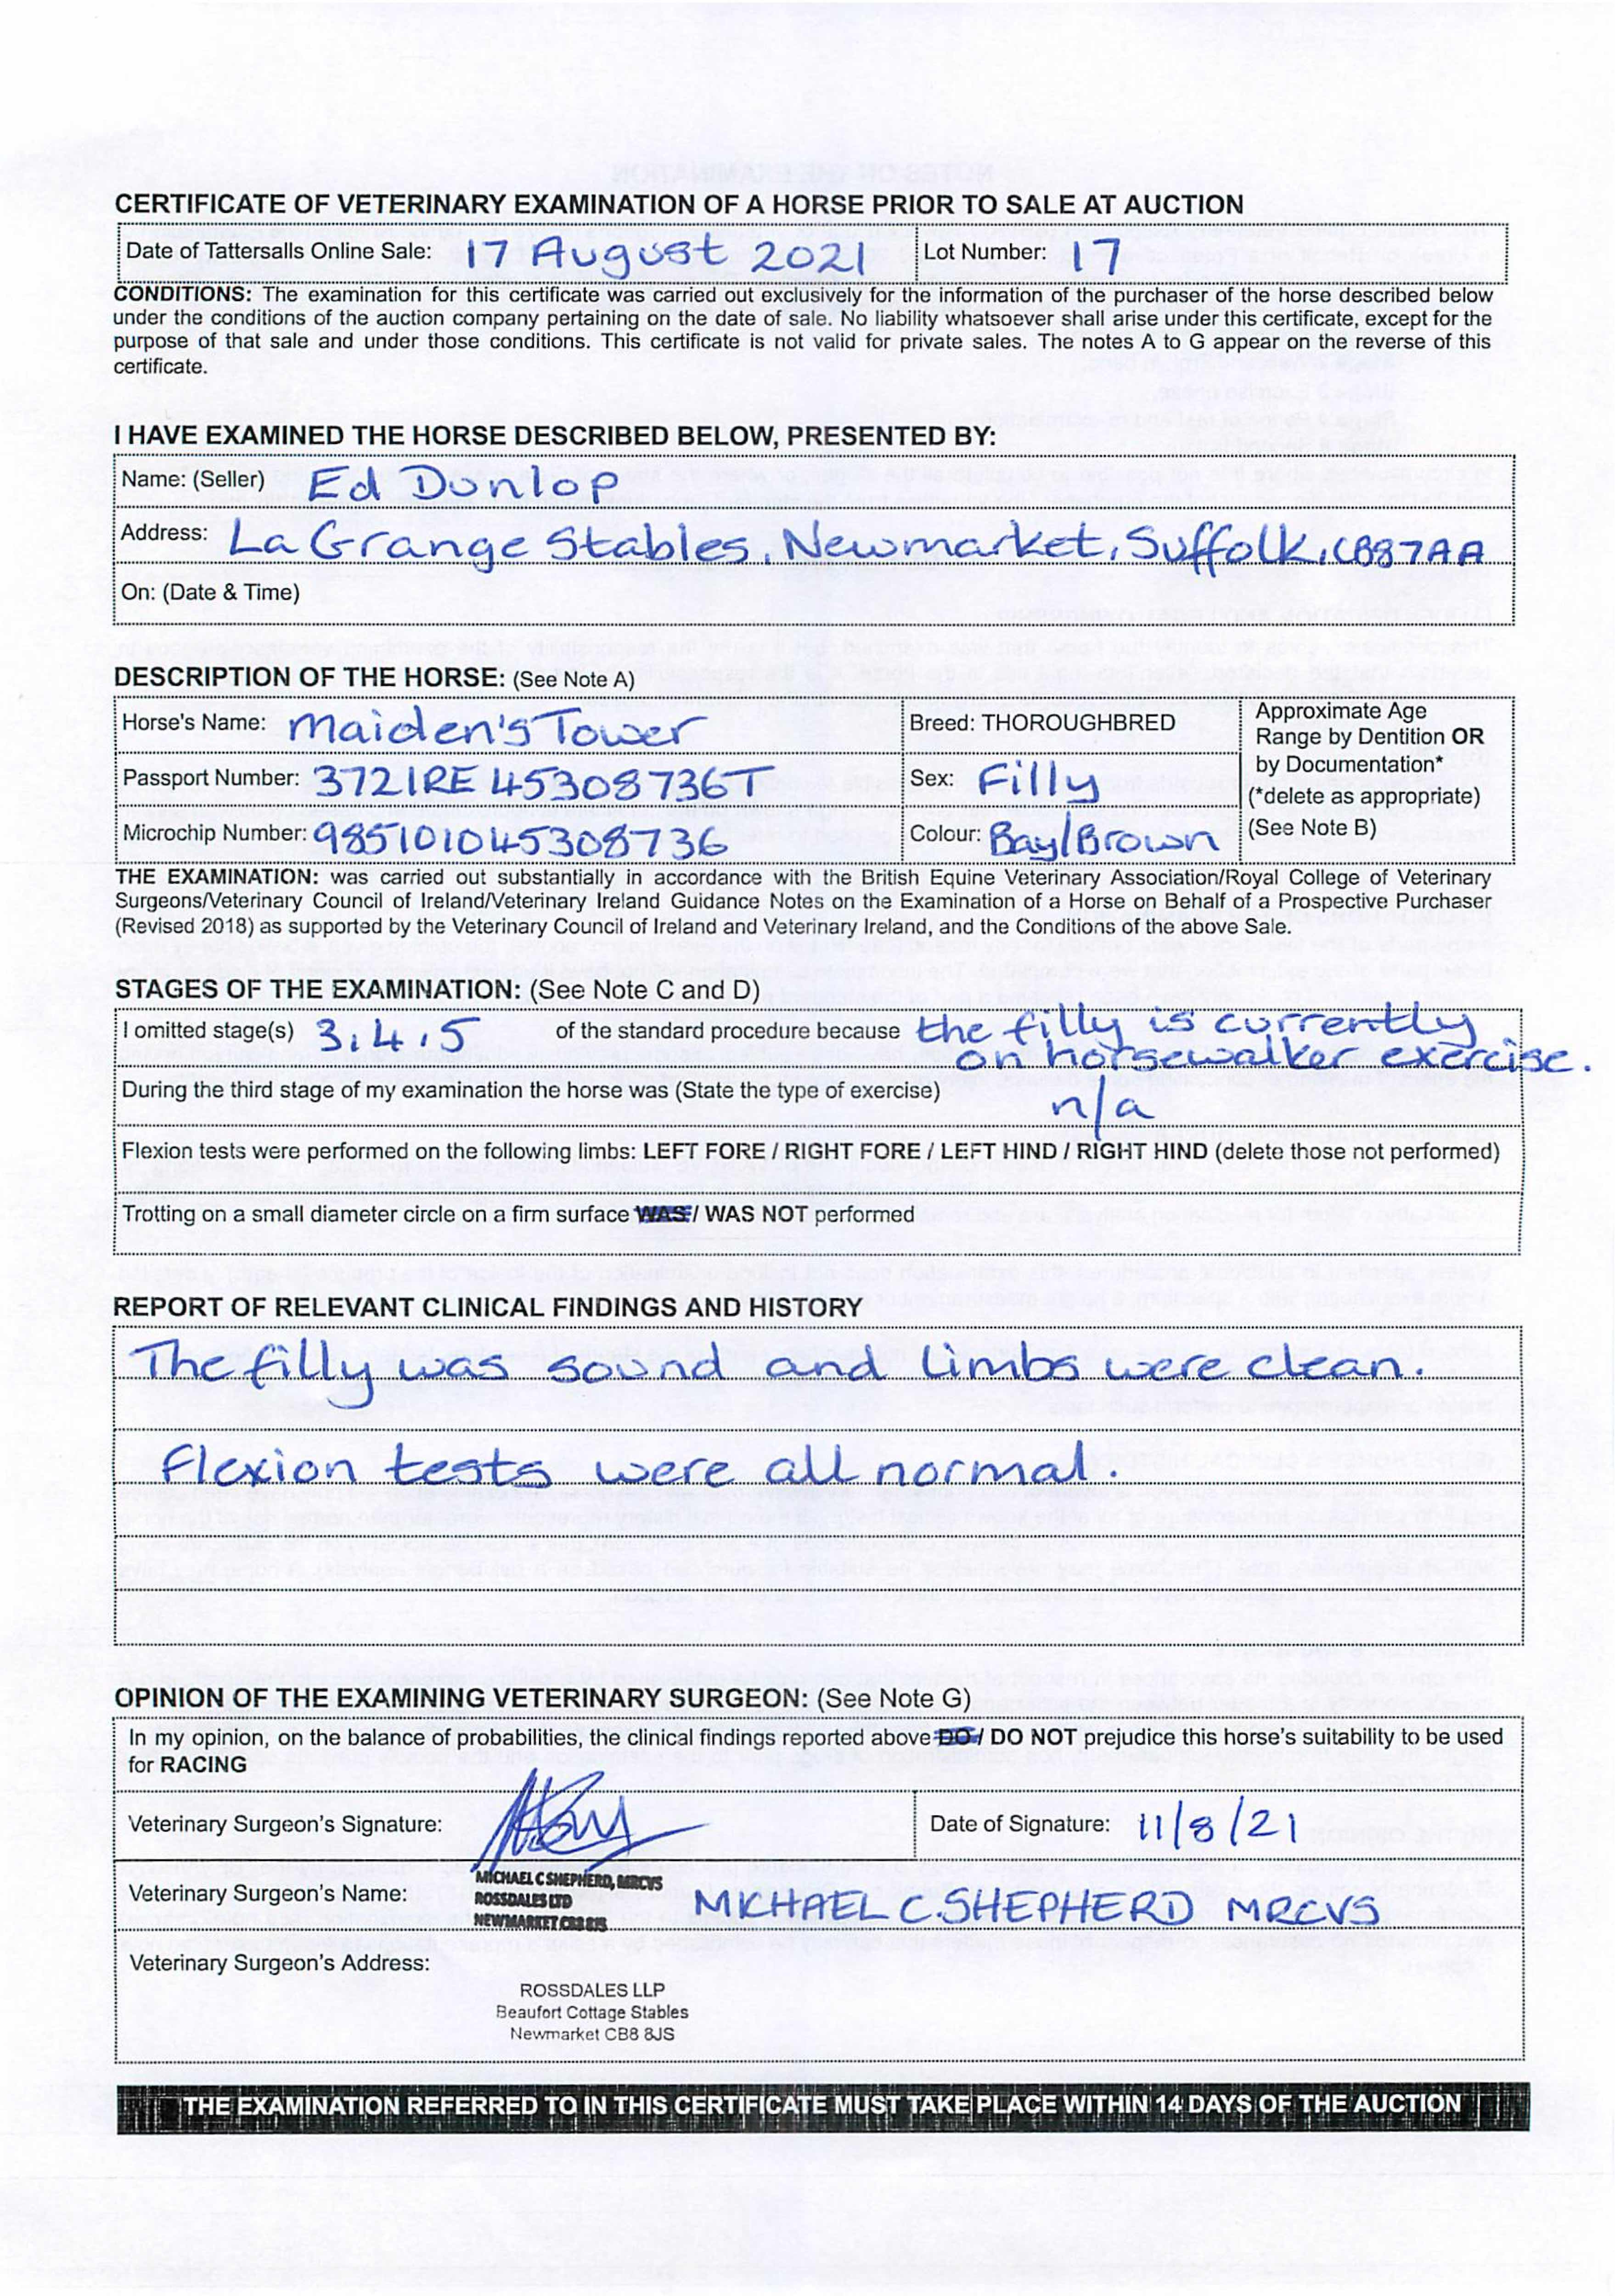 CERTIFICATE OF VETERINARY EXAMINATION OF A HORSE PRIOR TO SALE AT AUCTION
Date of Tattersalls Online Sale: 17 August 2021 Lot Number: 17
CONDITIONS: The examination for this certificate was carried out exclusively for the information of the purchaser of the horse described below
under the conditions of the auction company pertaining on the date of sale. No liability whatsoever shall arise under this certificate, except for the
purpose of that sale and under those conditions. This certificate is not valid for private sales. The notes A to G appear on the reverse of this
certificate.
I HAVE EXAMINED THE HORSE DESCRIBED BELOW, PRESENTED BY:
Name: (Seller) Ed Dunlop
Address: La Grange Stables, Newmarket, Suffolk, CB87AA
On: (Date & Time)
DESCRIPTION OF THE HORSE: (See Note A)
Horse's Name: Maiden's Tower Breed: THOROUGHBRED
Passport Number: 372IRE45308736T Sex: Filly
Microchip Number: 985101045308736 Colour: Bay/Brown
Approximate Age
Range by Dentition OR
by Documentation*
(*delete as appropriate)
(See Note B)
THE EXAMINATION: was carried out substantially in accordance with the British Equine Veterinary Association/Royal College of Veterinary
Surgeons/Veterinary Council of Ireland/Veterinary Ireland Guidance Notes on the Examination of a Horse on Behalf of a Prospective Purchaser
(Revised 2018) as supported by the Veterinary Council of Ireland and Veterinary Ireland, and the Conditions of the above Sale.
STAGES OF THE EXAMINATION: (See Note C and D)
I omitted stage(s) 3,4,5 of the standard procedure because the filly is currently
on horsewalker exercise.
During the third stage of my examination the horse was (State the type of exercise) n/a
Flexion tests were performed on the following limbs: LEFT FORE / RIGHT FORE / LEFT HIND / RIGHT HIND (delete those not performed)
Trotting on a small diameter circle on a firm surface WAS / WAS NOT performed
REPORT OF RELEVANT CLINICAL FINDINGS AND HISTORY
The filly was sound and limbs were clean.
Flexion tests were all normal.
OPINION OF THE EXAMINING VETERINARY SURGEON: (See Note G)
In my opinion, on the balance of probabilities, the clinical findings reported above DO / DO NOT prejudice this horse's suitability to be used
for RACING
Veterinary Surgeon's Signature: Date of Signature: 11/8/21
MICHAEL C SHEPHERD, MRCVS
ROSSDALES LTD
Veterinary Surgeon's Name: MICHAEL C. SHEPHERD MRCVS
Veterinary Surgeon's Address:
ROSSDALES LLP
Beaufort Cottage Stables
Newmarket CB8 8JS
THE EXAMINATION REFERRED TO IN THIS CERTIFICATE MUST TAKE PLACE WITHIN 14 DAYS OF THE AUCTION